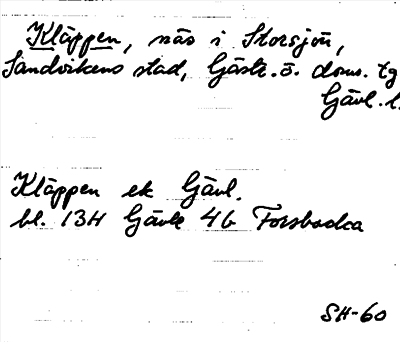 Kläppen, näs i Storsjön,
Sandvikens stad, Gästr. ö. doms. tg
Gävl. l.
Kläppen ek Gävl.
bl. 13H Gävle 4b Forsbacka
SH-60